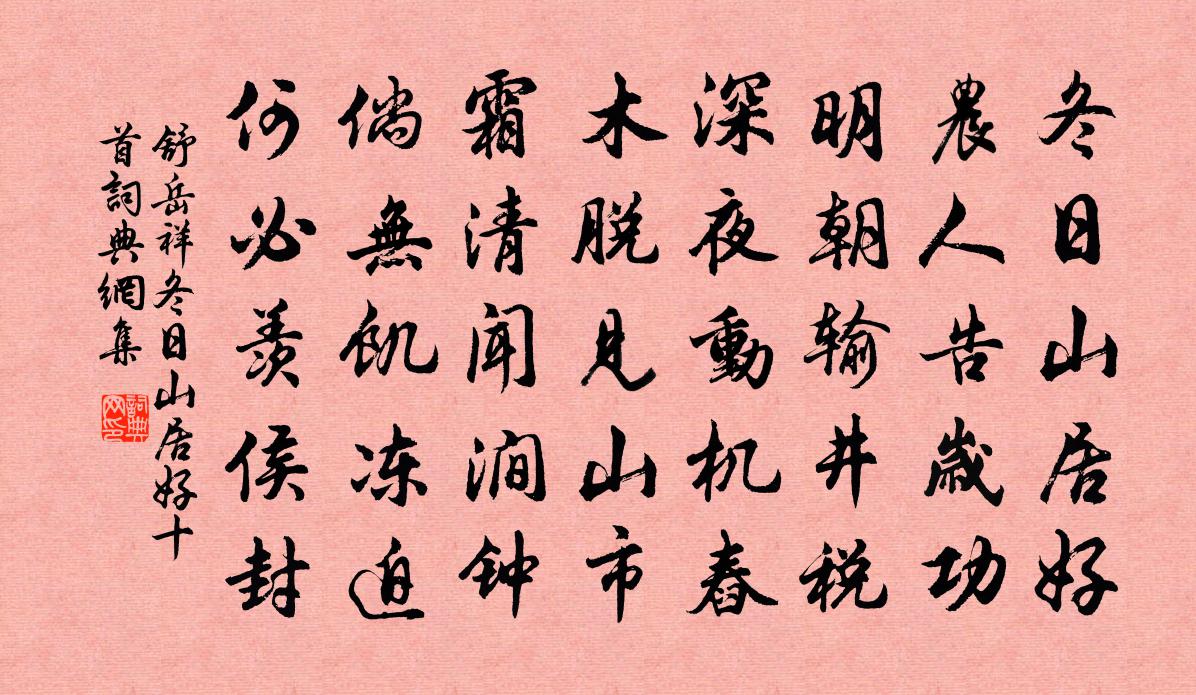 冬日山居好
農人告歲功
明朝输井税
深夜動机舂
木脱見山市
霜清闻澗钟
倘無飢冻迫
何必羨侯封
舒岳祥冬日山居好十
首詞典網集
詞典
网印